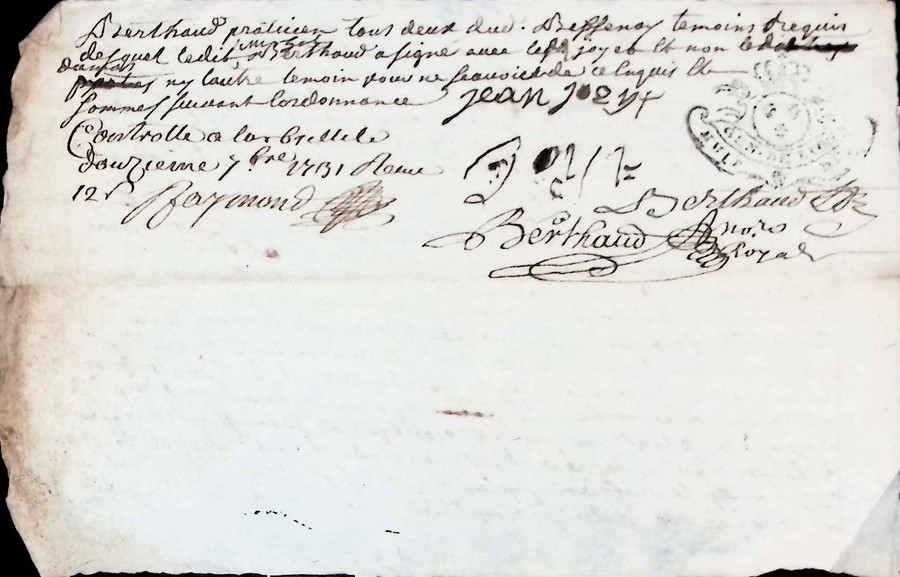 Berthaud praticien tous deux dud. Bessenay temoins requis
desquel ledit Mr Berthaud a signé avec lesd joyet Et non led
dautres
parties ny lautre temoin pour ne scavoir de ce Enquis Et
sommes suivant Lordonnance jean joeyt
Controlle a larbresle le
douzieme 7bre 1731 Receu
12 s Raymond
Berthaud
Berthaud nore
Royal